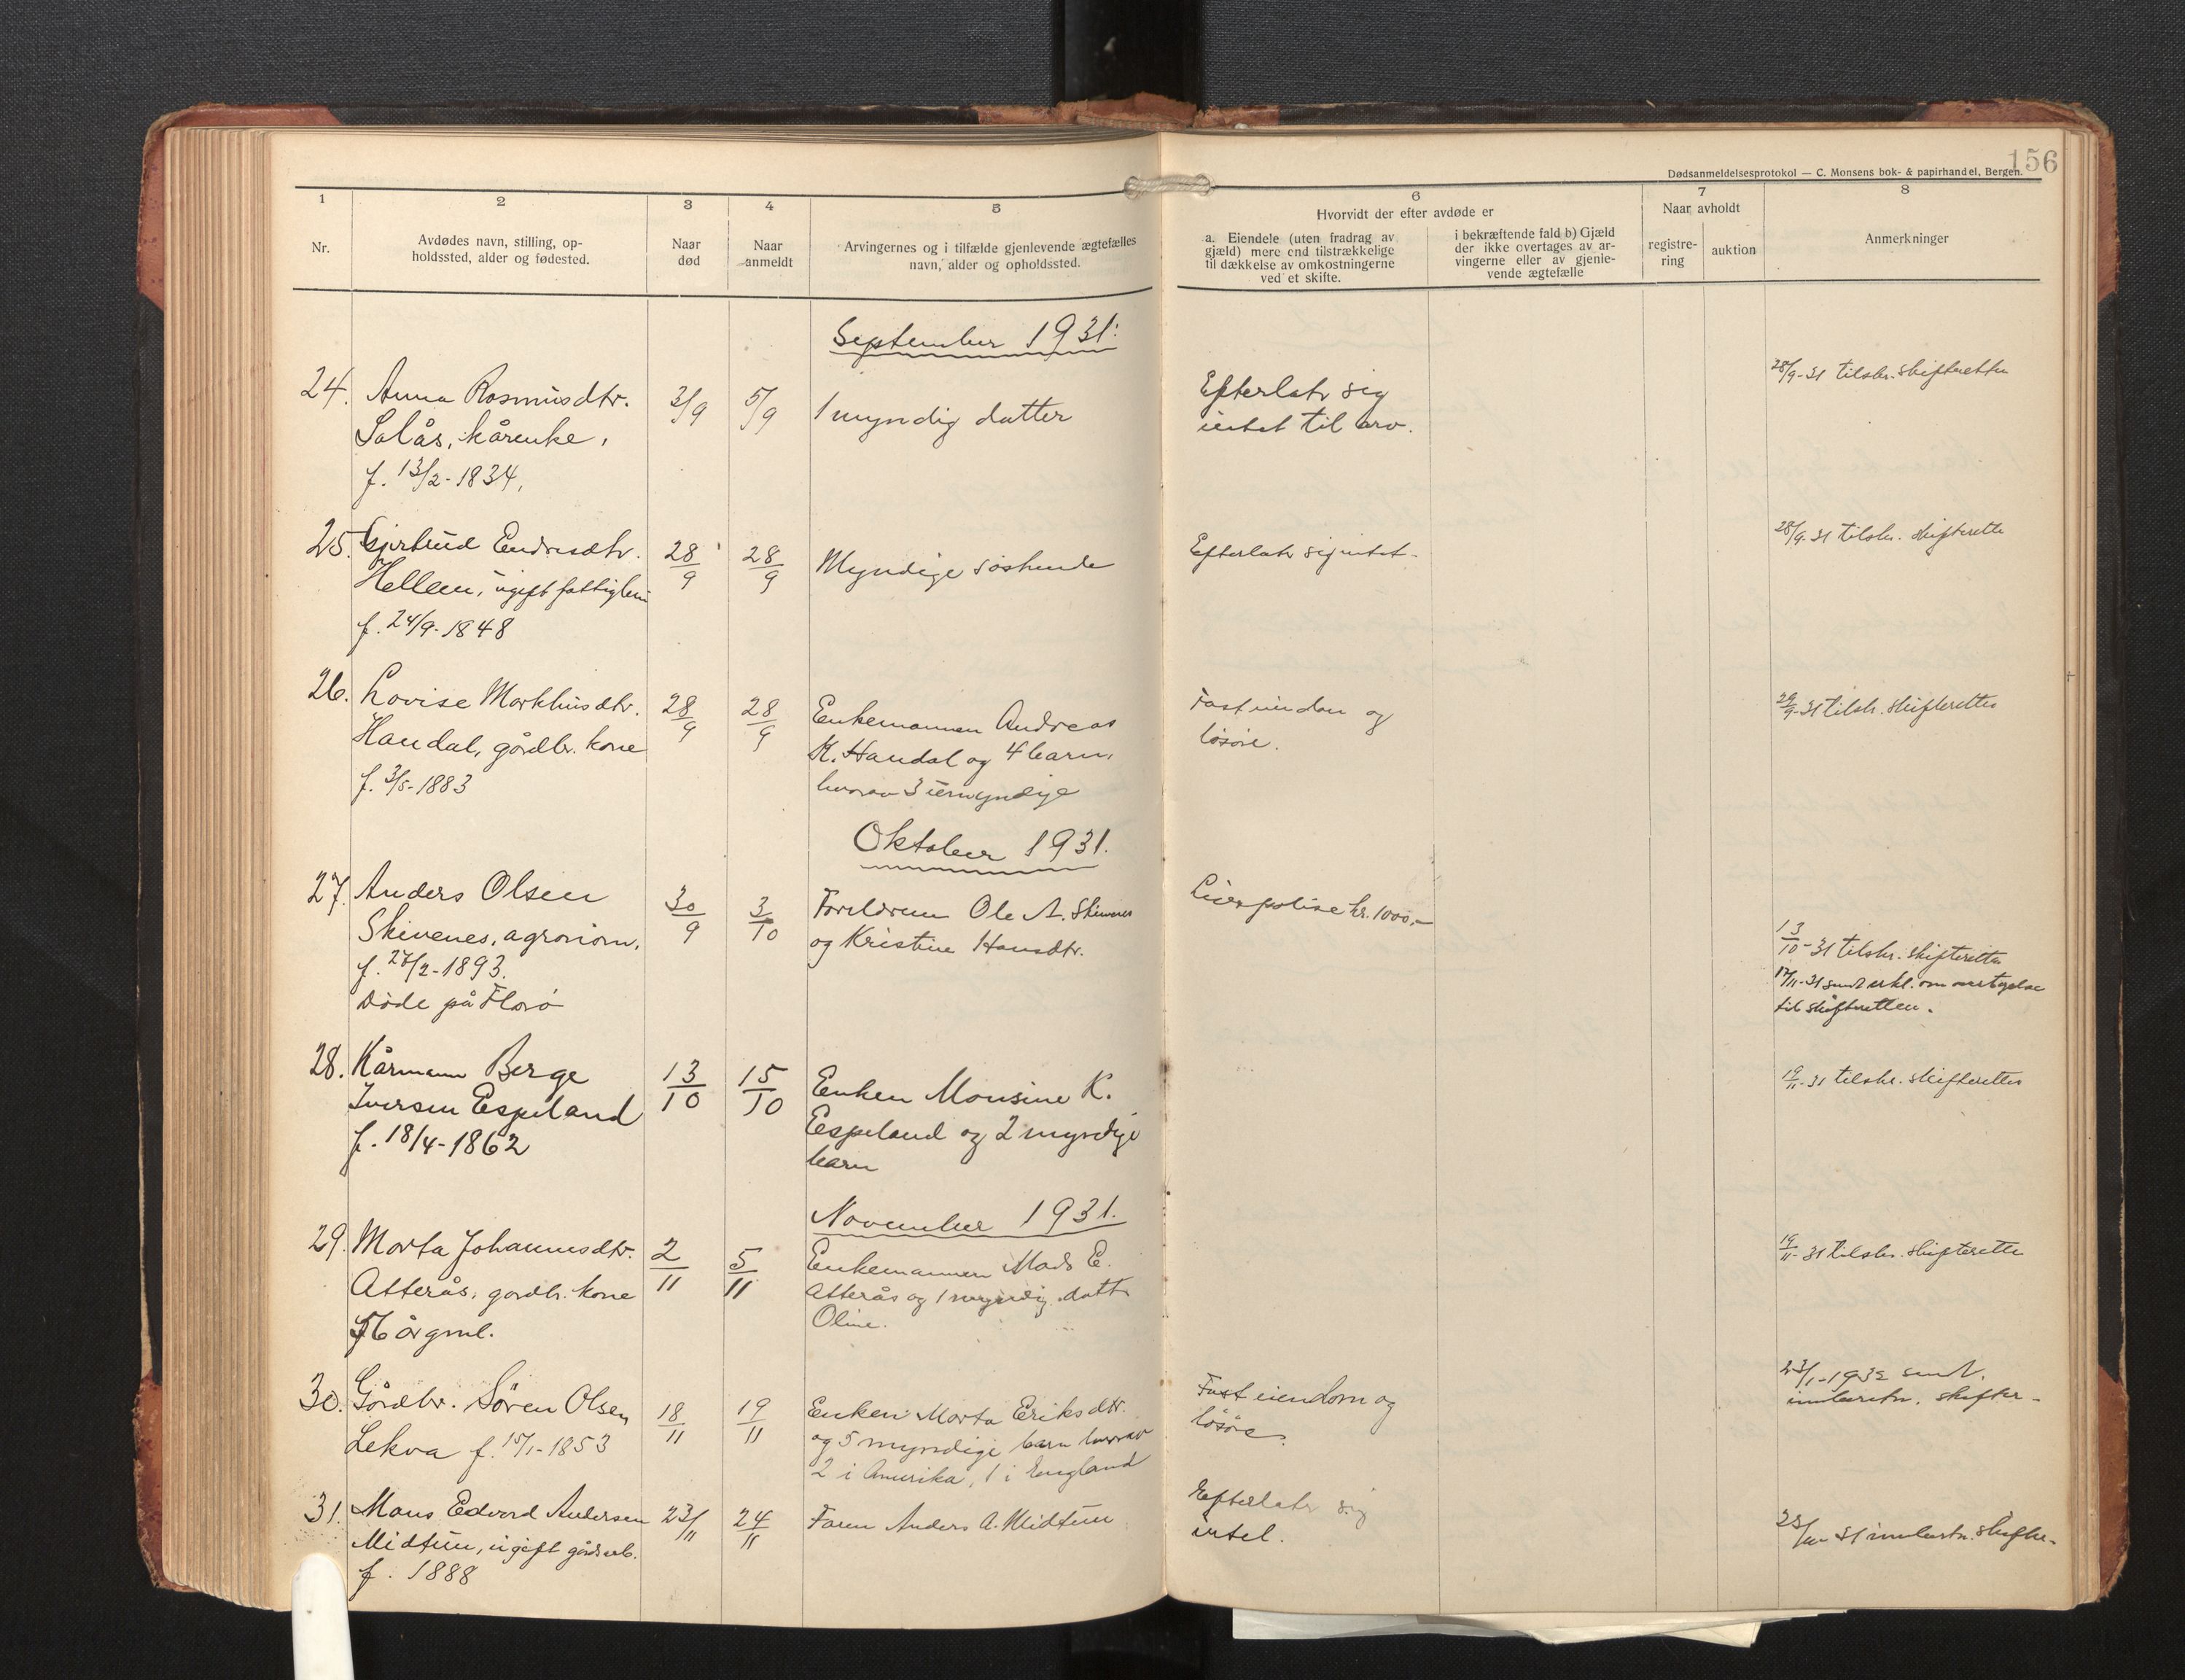 156
Dødsanmeldelsesprotokol — C. Monsens bok- & papirhandel, Bergen.
1 2 3 4 5 6 7 8
Nr.
Avdødes navn, stilling, op-
holdssted, alder og fødested.
Naar
død
Naar
anmeldt
Arvingernes og i tilfælde gjenlevende ægtefælles
navn, alder og opholdssted.
Hvorvidt der efter avdøde er
a. Eiendele (uten fradrag av
gjæld) mere end tilstrækkelige
til dækkelse av omkostningerne
ved et skifte.
i bekræftende fald b) Gjæld
der ikke overtages av ar-
vingerne eller av gjenle-
vende ægtefælle
Naar avholdt
registre-
ring
auktion
Anmerkninger
September 1931:
24. Anna Rasmusdtr.
Solås, kårenke,
f. 13/2-1834,
3/9
5/9
1 myndig datter
Efterlatr sig
intet til arv.
28/9-31 tilskr. skifteretten
25. Gjertrud Endresdtr.
Hellem, ugift fattiglem
f. 24/9-1848
28/9
28/9
Myndige søskende
Efterlatr sig intet-
28/9-31 tilskr. skifterette
26. Lovise Markhusdtr.
Handal, gårdbr. kone
f. 3/5-1883
28/9
28/9
Enkemannen Andreas
K. Handal og 4 barn,
hvorav 3 umyndige
Fast eiendom og
løsøre.
29/9-31 tilskr. skifteretten
Oktober 1931.
27. Anders Olsen
Skivenes, agronom,
f. 27/2-1893.
Døde på Florø
30/9
3/10
Foreldrene Ole A. Skivenes
og Kristine Hansdtr.
Livspolise kr. 1000,-
13/10-31 tilskr. skifteretten
17/11-31 sendt erkl. om overtagelse
til skifteretten.
28. Kårmann Berge
Iversen Espeland
f. 18/4-1862
13/10
15/10
Enken Monsine K.
Espeland og 2 myndige
barn
19/11-31 tilskr. skifteretten
November 1931.
29. Marta Johannesdtr.
Atterås, gardbr. kone
56 år gml.
2/11
5/11
Enkemannen Mads E.
Atterås og 1 myndig datt
Oline.
19/11-31 tilskr. skifterette
30. Gårdbr. Søren Olsen
Lekva f. 15/1-1853
18/11
19/11
Enken Marta Eriksdtr.
og 5 myndige barn hvorav
2 i Amerika, 1 i England
Fast eiendom og
løsøre.
23/1-1932 sendt
innberetn. skifter-
31. Mons Edvard Andersen
Midtun, ugift gårdsarb.
f. 1888
23/11
24/11
Faren Anders A. Midtun
Efterlatr sig
intet.
31 innberetn. skifter-